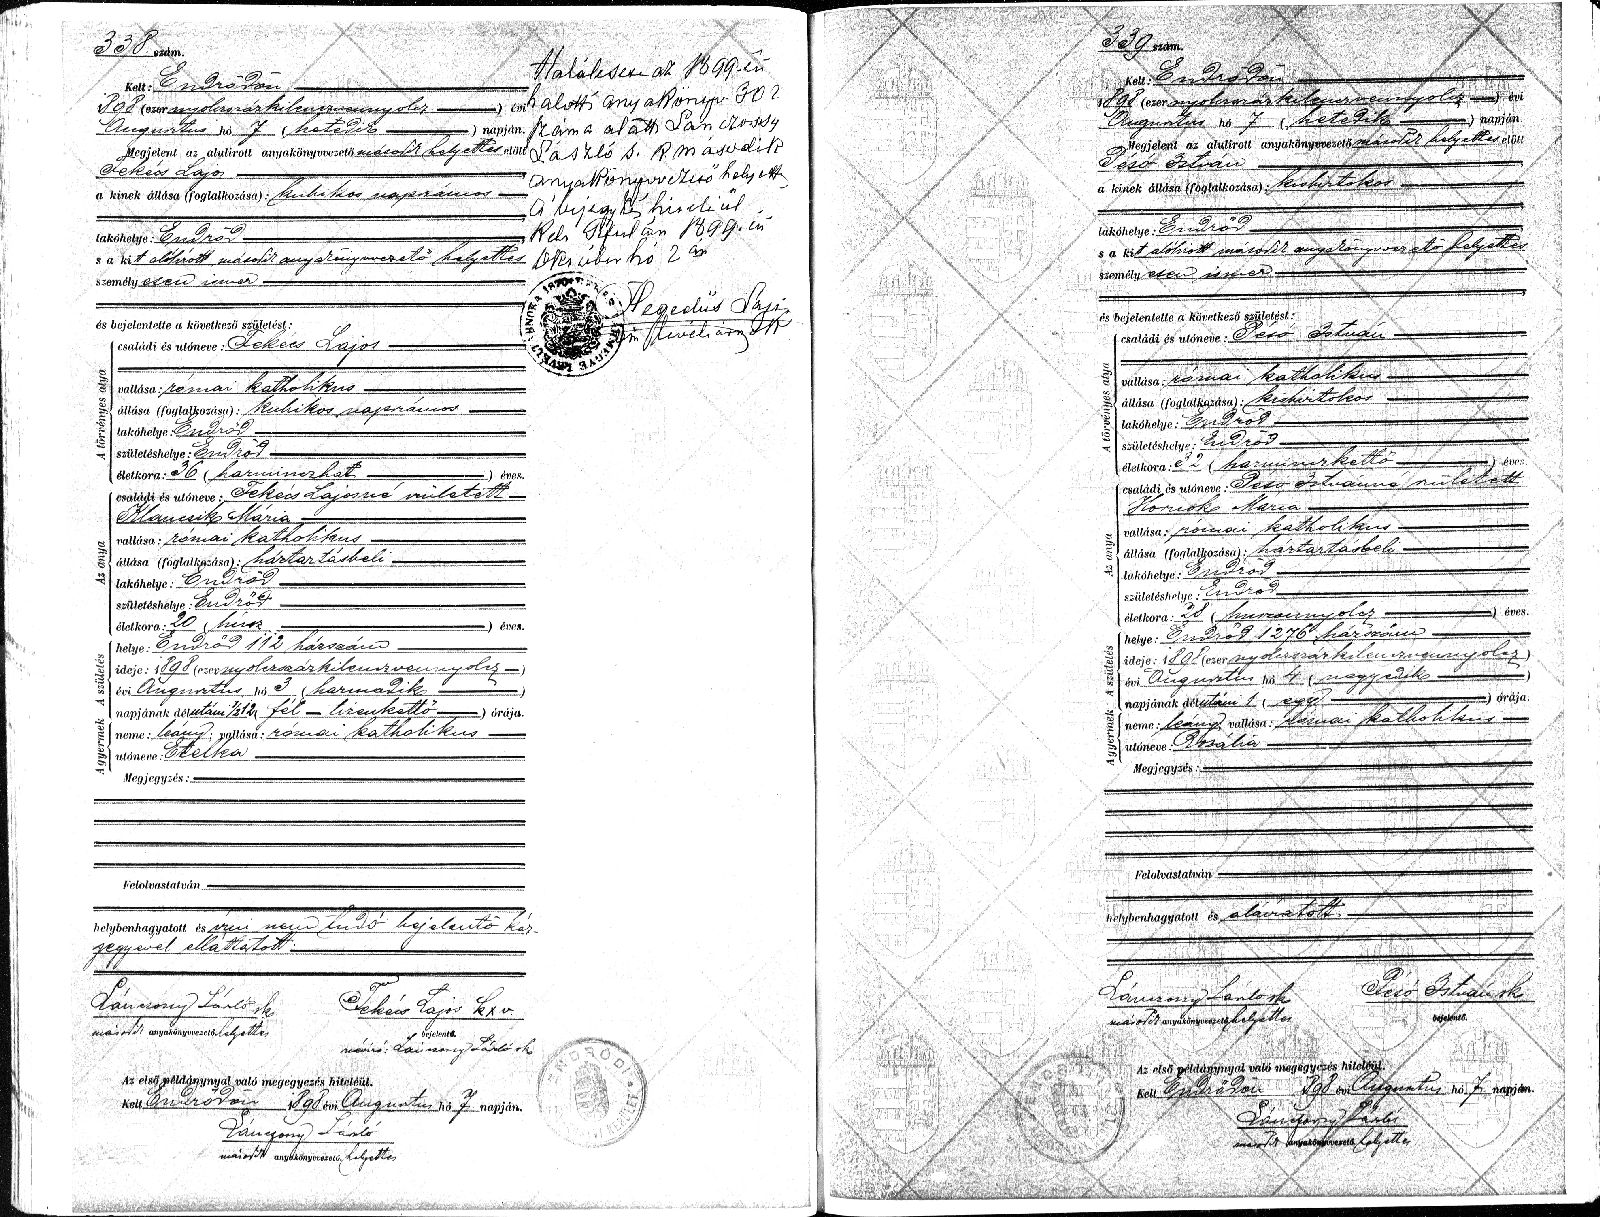 338. szám.
Kelt: Endrődön
1898 (ezer nyolcszázkilenczvennyolcz) évi
Augustus hó 7 (hetedik) napján.
Megjelent az alulirott anyakönyvvezető második helyettes előtt
Fekécs Lajos
a kinek állása (foglalkozása): kubikos napszámos
lakóhelye: Endrőd
s a kit alólirott második anyakönyvvezető helyettes
személyesen ismer
és bejelentette a következő születést:
A törvényes atya
családi és utóneve: Fekécs Lajos
vallása: római katholikus
állása (foglalkozása): kubikos napszámos
lakóhelye: Endrőd
születéshelye: Endrőd
életkora: 36 (harminczhat) éves.
Az anya
családi és utóneve: Fekécs Lajosné született
Klancsik Mária
vallása: római katholikus
állása (foglalkozása): háztartásbeli
lakóhelye: Endrőd
születéshelye: Endrőd
életkora: 20 (húsz) éves.
A születés
helye: Endrőd 112 házszám
ideje: 1898 (ezer nyolczszázkilenczvennyolcz)
évi Augustus hó 3 (harmadik)
napjának délutáni 1/2 12 (fél – tizenkettő) órája.
A gyermek
neme: leány; vallása: római katholikus
utóneve: Etelka
Megjegyzés:
Felolvastatván
helybenhagyatott és írni nem tudó bejelentő kéz-
jegyével elláttatott.
Lánczony László sk
második anyakönyvvezető helyettes
Fekécs Lajos kxv
bejelentő.
névíró: Lánczony László sk
Az első példánynyal való megegyezés hiteléül.
Kelt Endrődön 1898 évi Augustus hó 7 napján.
Lánczony László
második anyakönyvvezető helyettes
ENDRŐDI
Halálesete az 1899-ik
halotti anyakönyv 302
száma alatt Lánczossy
László s. k. második
anyakönyvvezető helyett
A bejegyzés hiteléül
Kelt Gyulán 1899-ik
Október hó 2 án
Hegedüs
339 szám.
Kelt: Endrődön
1898 (ezer nyolcszázkilenczvennyolcz) évi
Augustus hó 7 (hetedik) napján.
Megjelent az alulirott anyakönyvvezető második helyettes előtt
Pésó István
a kinek állása (foglalkozása): kisbirtokos
lakóhelye: Endrőd
s a kit alólirott második anyakönyvvezető helyettes
személyesen ismer
és bejelentette a következő születést:
A törvényes atya
családi és utóneve: Pésó István
vallása: római katholikus
állása (foglalkozása): kisbirtokos
lakóhelye: Endrőd
születéshelye: Endrőd
életkora: 32 (harminczkettő) éves.
Az anya
családi és utóneve: Pésó Istvánné született
Hornok Mária
vallása: római katholikus
állása (foglalkozása): háztartásbeli
lakóhelye: Endrőd
születéshelye: Endrőd
életkora: 28 (huszonnyolcz) éves.
A születés
helye: Endrőd 1276 házszám
ideje: 1898 (ezer nyolczszázkilenczvennyolcz)
évi Augustus hó 4 (negyedik)
napjának délutáni 1 (egy) órája.
A gyermek
neme: leány; vallása: római katholikus
utóneve: Rozália
Megjegyzés:
Felolvastatván
helybenhagyatott és aláíratott.
Lánczony László sk
második anyakönyvvezető helyettes
Pésó István sk
bejelentő.
Az első példánynyal való megegyezés hiteléül.
Kelt Endrődön 1898 évi Augustus hó 7 napján.
Lánczony László
második anyakönyvvezető helyettes